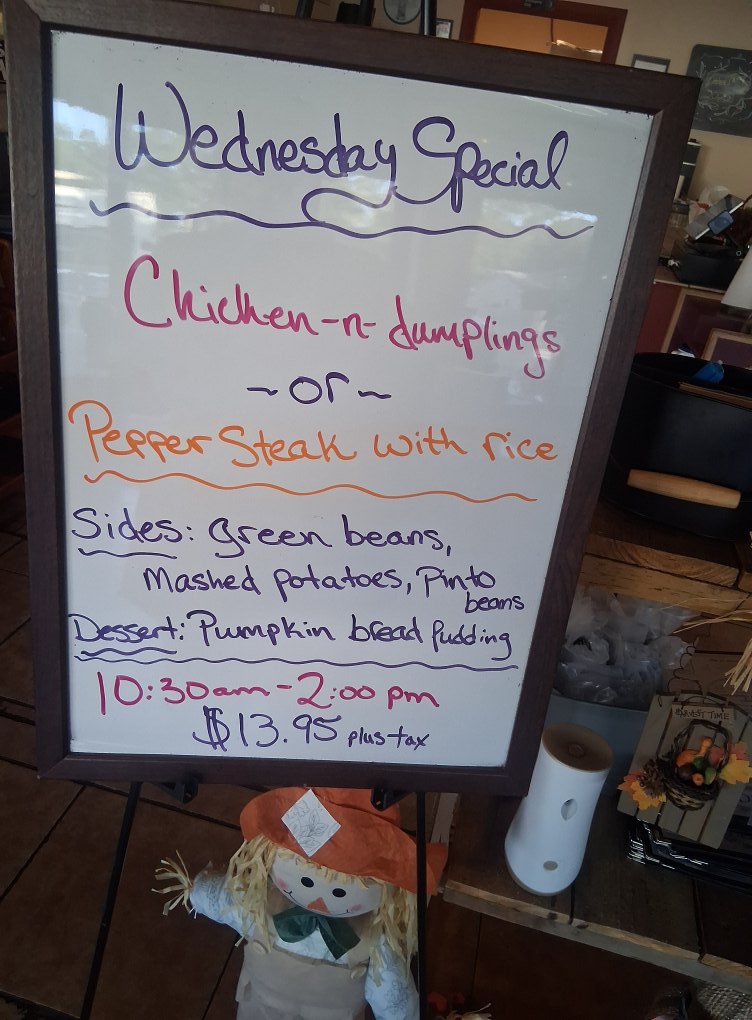 Wednesday Special
Chicken-n-dumplings
~or~
Pepper Steak with rice
Sides: green beans,
Mashed potatoes, Pinto
beans
Dessert: Pumpkin bread pudding
10:30am-2:00pm
$13.95 plus tax
HARVEST TIME